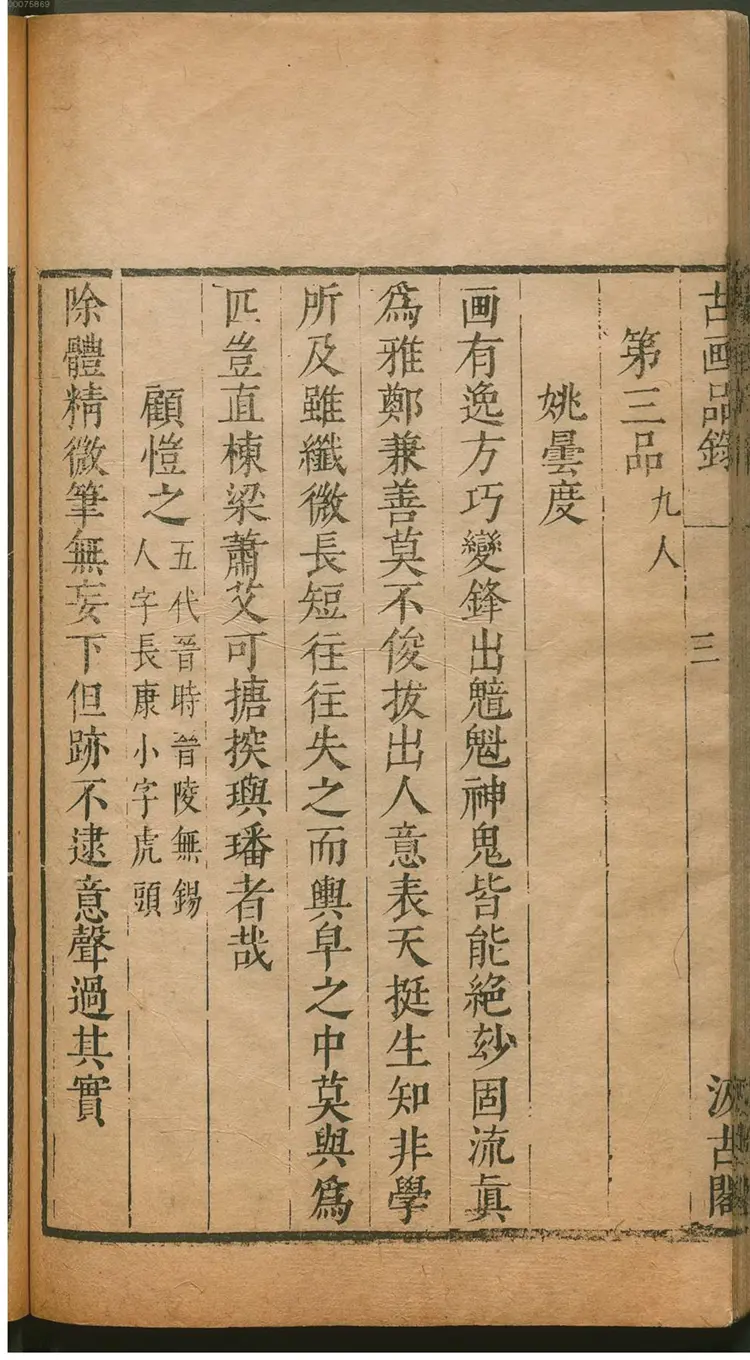 00075869
古画品錄
三
汲古閣
第三品九人
姚曇度
画有逸方巧變鋒出魑魁神鬼皆能絶玅固流眞
爲雅鄭兼善莫不俊拔出人意表天挺生知非學
所及雖纖微長短往往失之而輿皁之中莫與爲
匹豈直棟梁蕭艾可搪揬璵璠者哉
顧愷之
五代晉時晉陵無錫
人字長康小字虎頭
除體精微筆無妄下但跡不逮意聲過其實